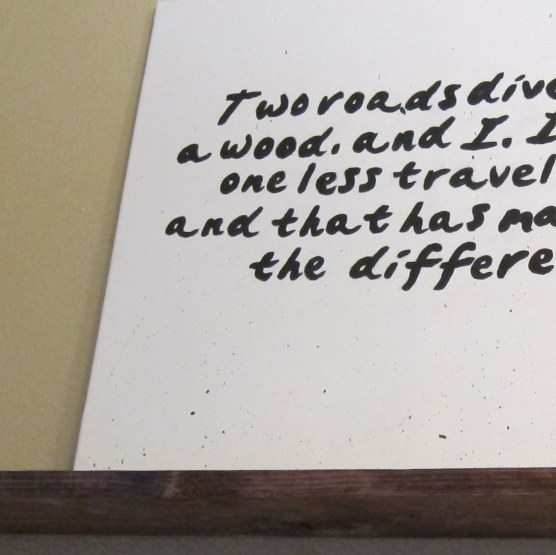 Two roads dive
a wood. and I. I
one less travel
and that has ma
the differe